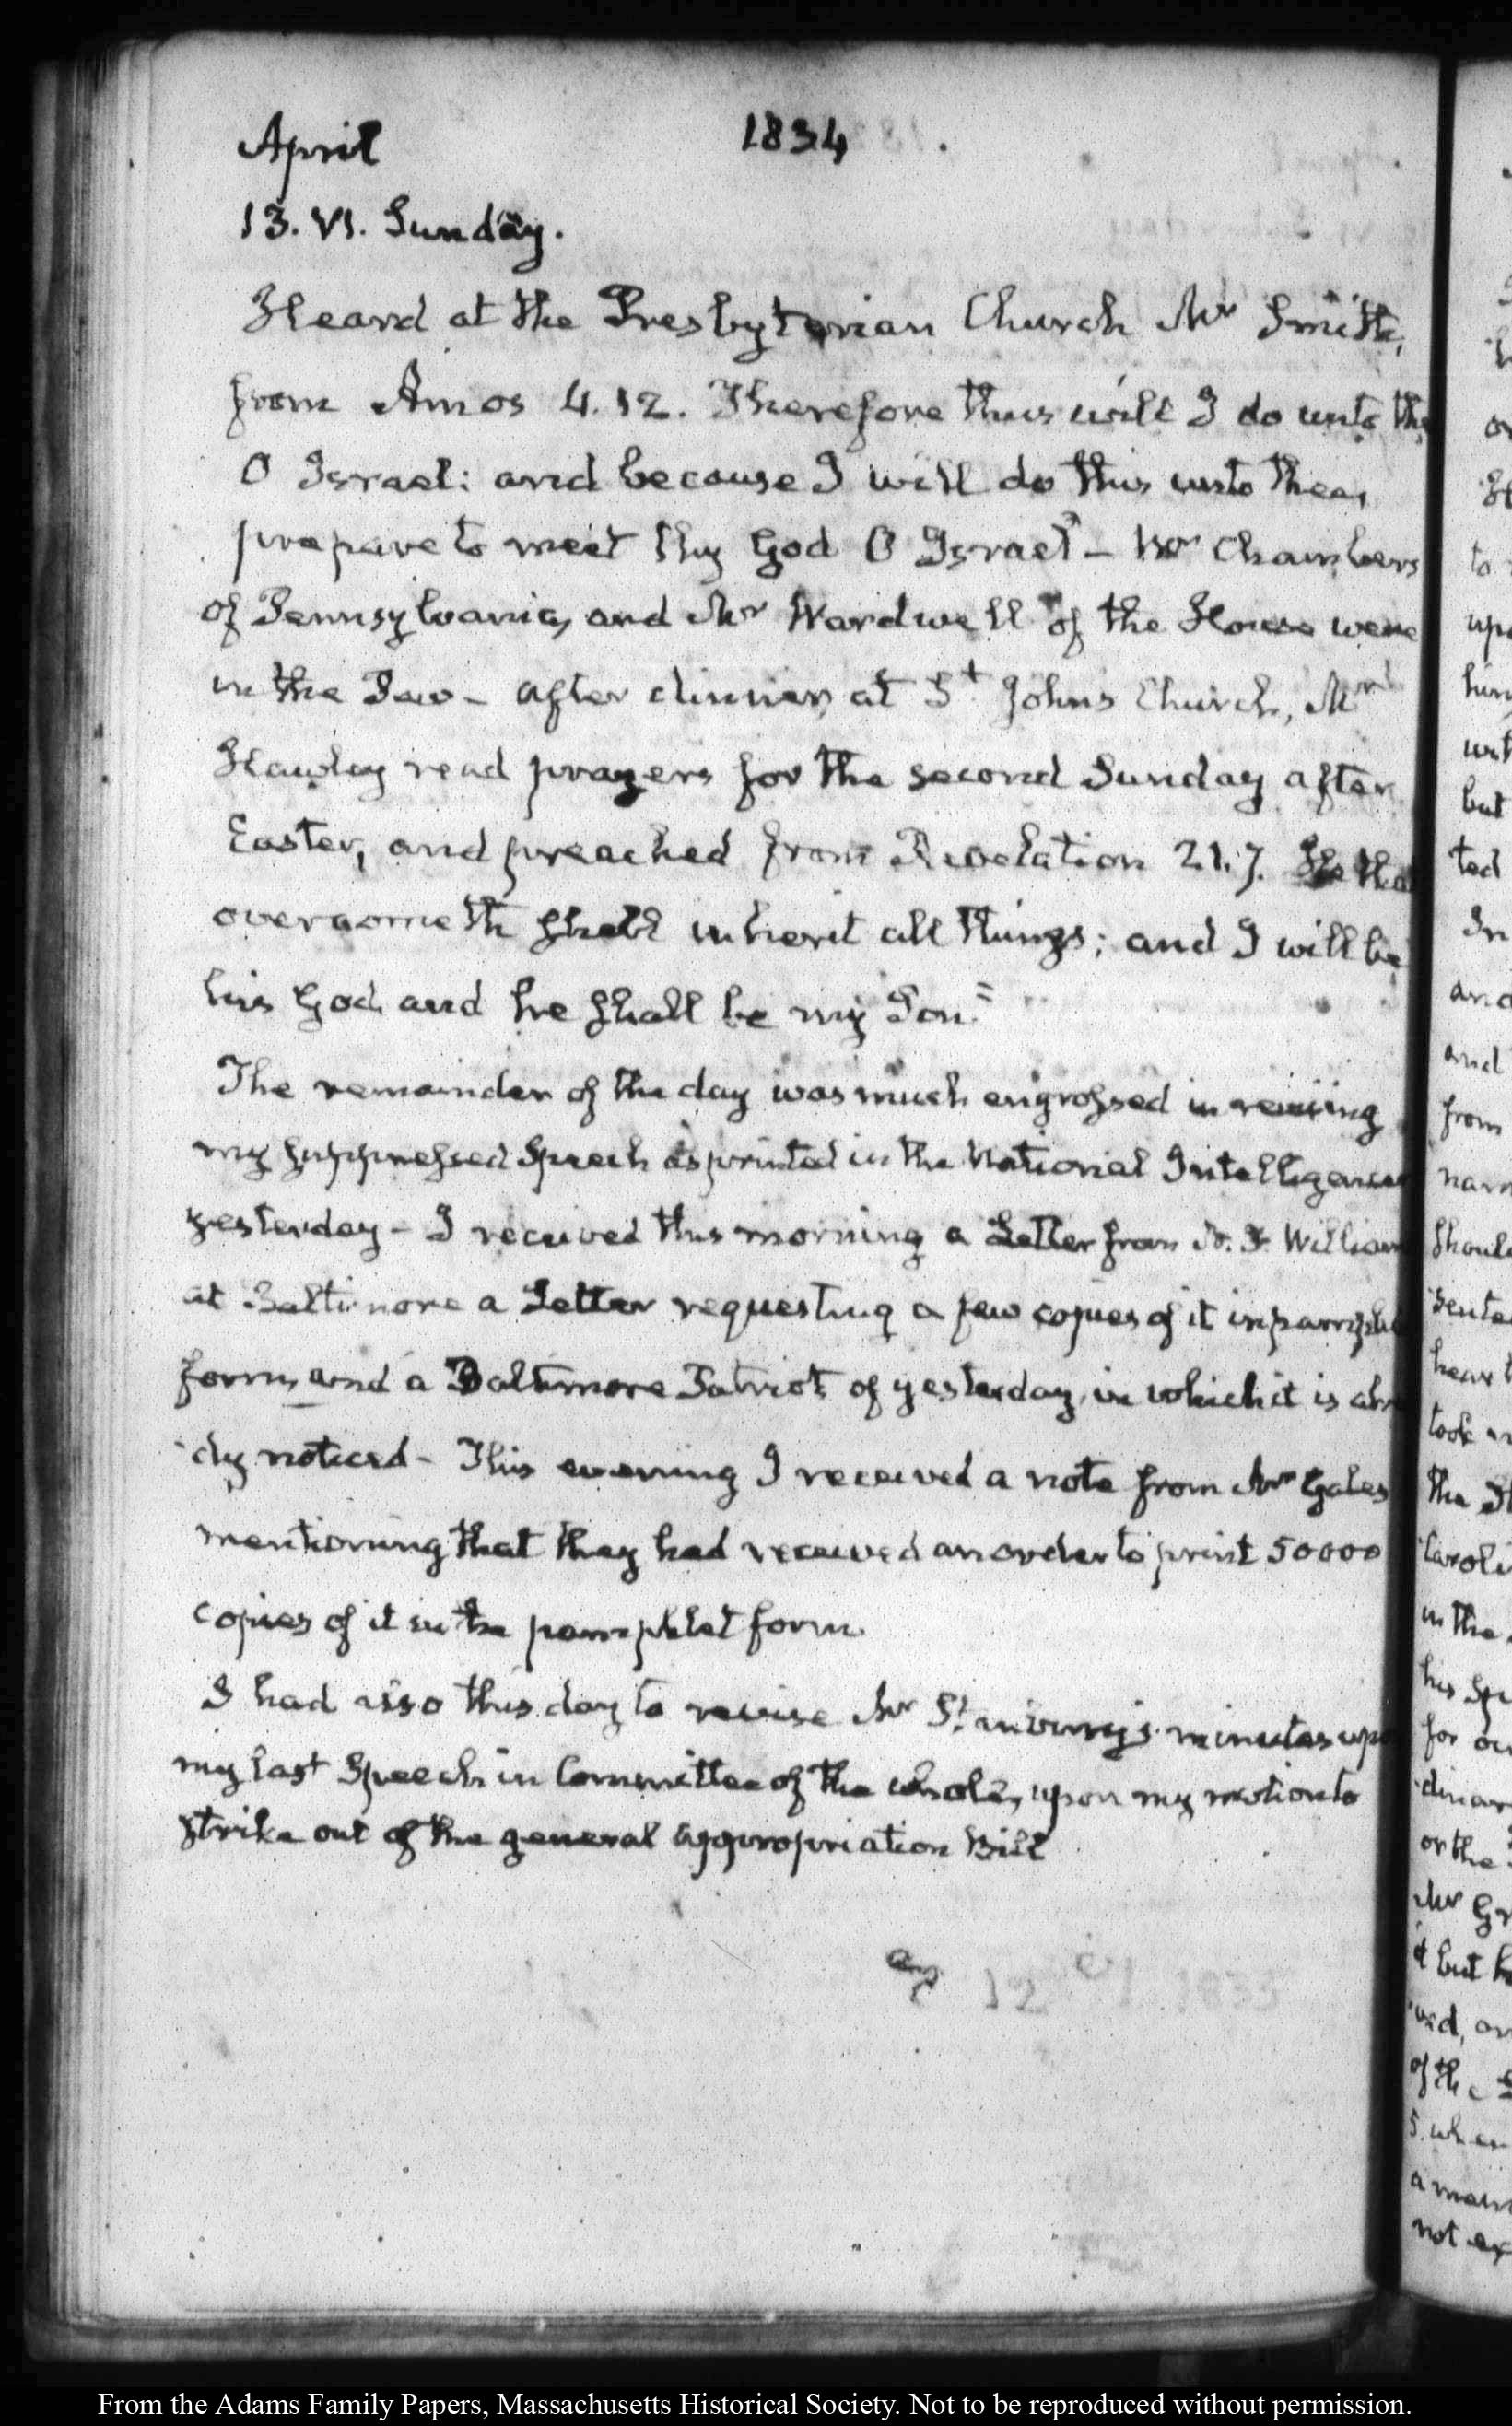 April 1834
13. VI. Sunday.
Heard at the Presbyterian Church Mr Smith,
from Amos 4.12. Therefore thus will I do unto the
O Israel: and because I will do this unto thee,
prepare to meet thy God O Israel — Mr Chambers
of Pennsylvania, and Mr Wardwell of the House were
in the Pew — After dinner, at St. Johns Church, Mr
Hawley read prayers for the second Sunday after
Easter, and preached from Revelation 21.7. He that
overcometh shall inherit all things; and I will be
his God, and he shall be my Son."
The remainder of the day was much engrossed in revising
my suppressed Speech as printed in the National Intelligencer
yesterday — I received this morning a Letter from N. F. William
at Baltimore a Letter requesting a few copies of it in pamphlet
form, and a Baltimore Patriot of yesterday, in which it is alre
dy noticed — This evening I received a note from Mr Gales
mentioning that they had received an order to print 50000
copies of it in the pamphlet form.
I had also this day to revise Mr Stansbury's minutes upon
my last Speech in Committee of the whole, upon my motion to
strike out of the general appropriation Bill
or
up
him
but
ted
In
and
from
took
the
in the
his
for
or the
Mr
it but
of the
not
From the Adams Family Papers, Massachusetts Historical Society. Not to be reproduced without permission.